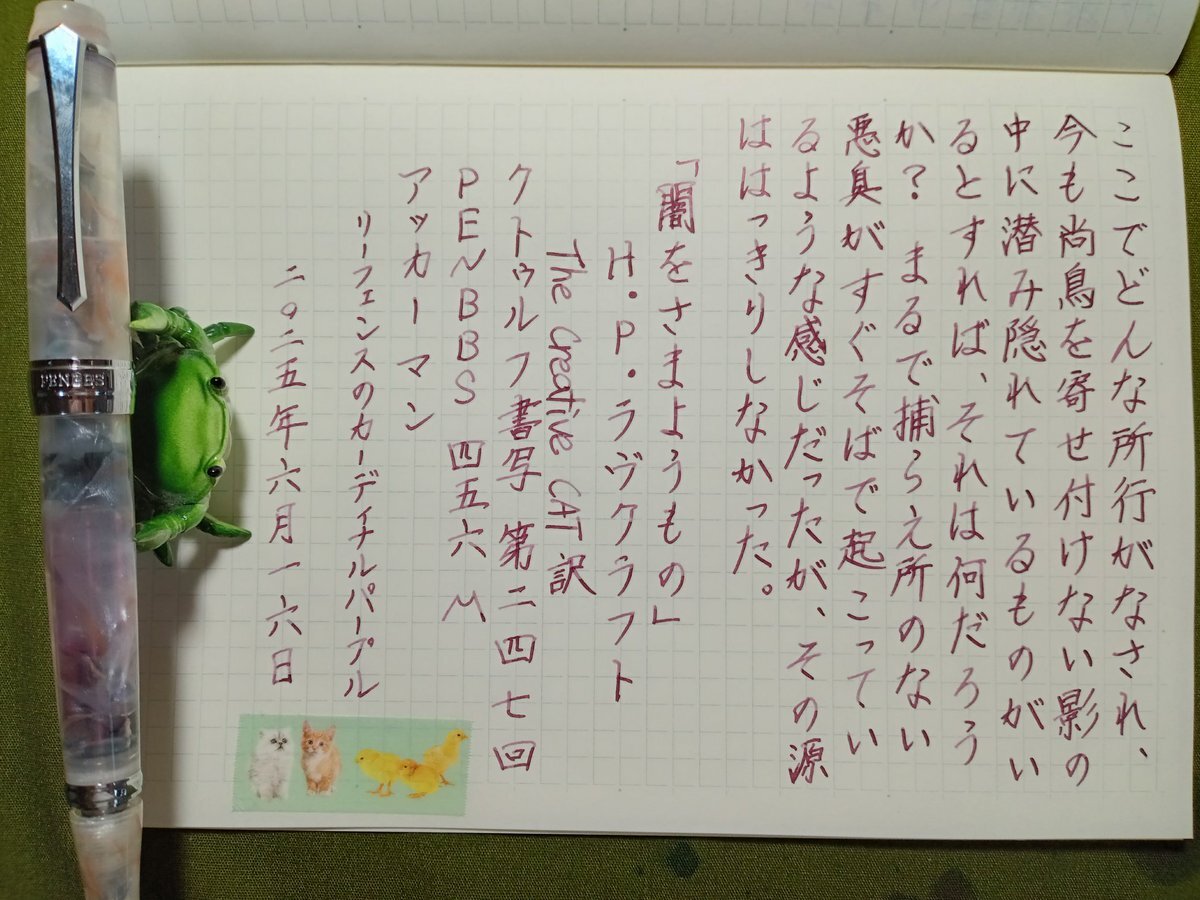 ここでどんな所行がなされ、
今も尚鳥を寄せ付けない影の
中に潜み隠れているものがい
るとすれば、それは何だろう
か？ まるで捕らえ所のない
悪臭がすぐそばで起こってい
るような感じだったが、その源
ははっきりしなかった。
「闇をさまようもの」
H・P・ラヴクラフト
The Creative CAT 訳
クトゥルフ書写 第二四七回
PENBBS 四五六 M
アッカーマン
リーフェンスのカーディナルパープル
二〇二五年六月一六日
PENBBS